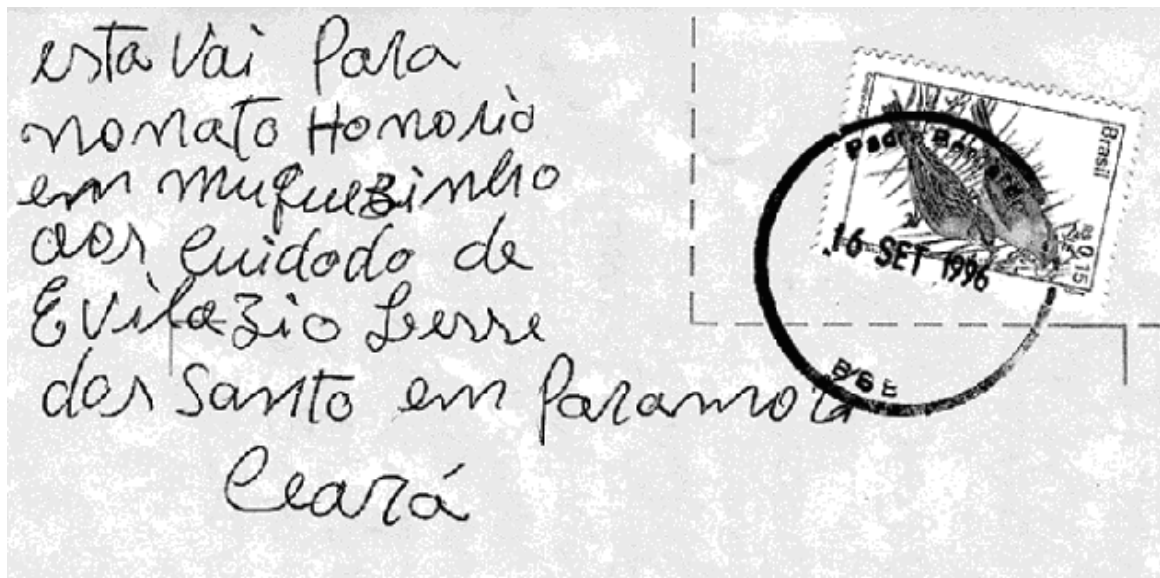 esta Vai Para
nonato Honorio
em muquezinho
aos Cuidado de
Evilazio Serre
dos Santo em Paramoti
Ceará
Brasil
0,15
16 SET 1996